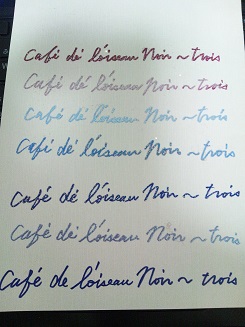 Café dé lóiseau Noir ~ trois
Café dé lóiseau Noir ~ trois
Café dé lóiseau Noir ~ trois
Café dé lóiseau Noir ~ trois
Café dé lóiseau Noir ~ trois
Café dé lóiseau Noir ~ trois
Café de lóiseau Noir ~ trois